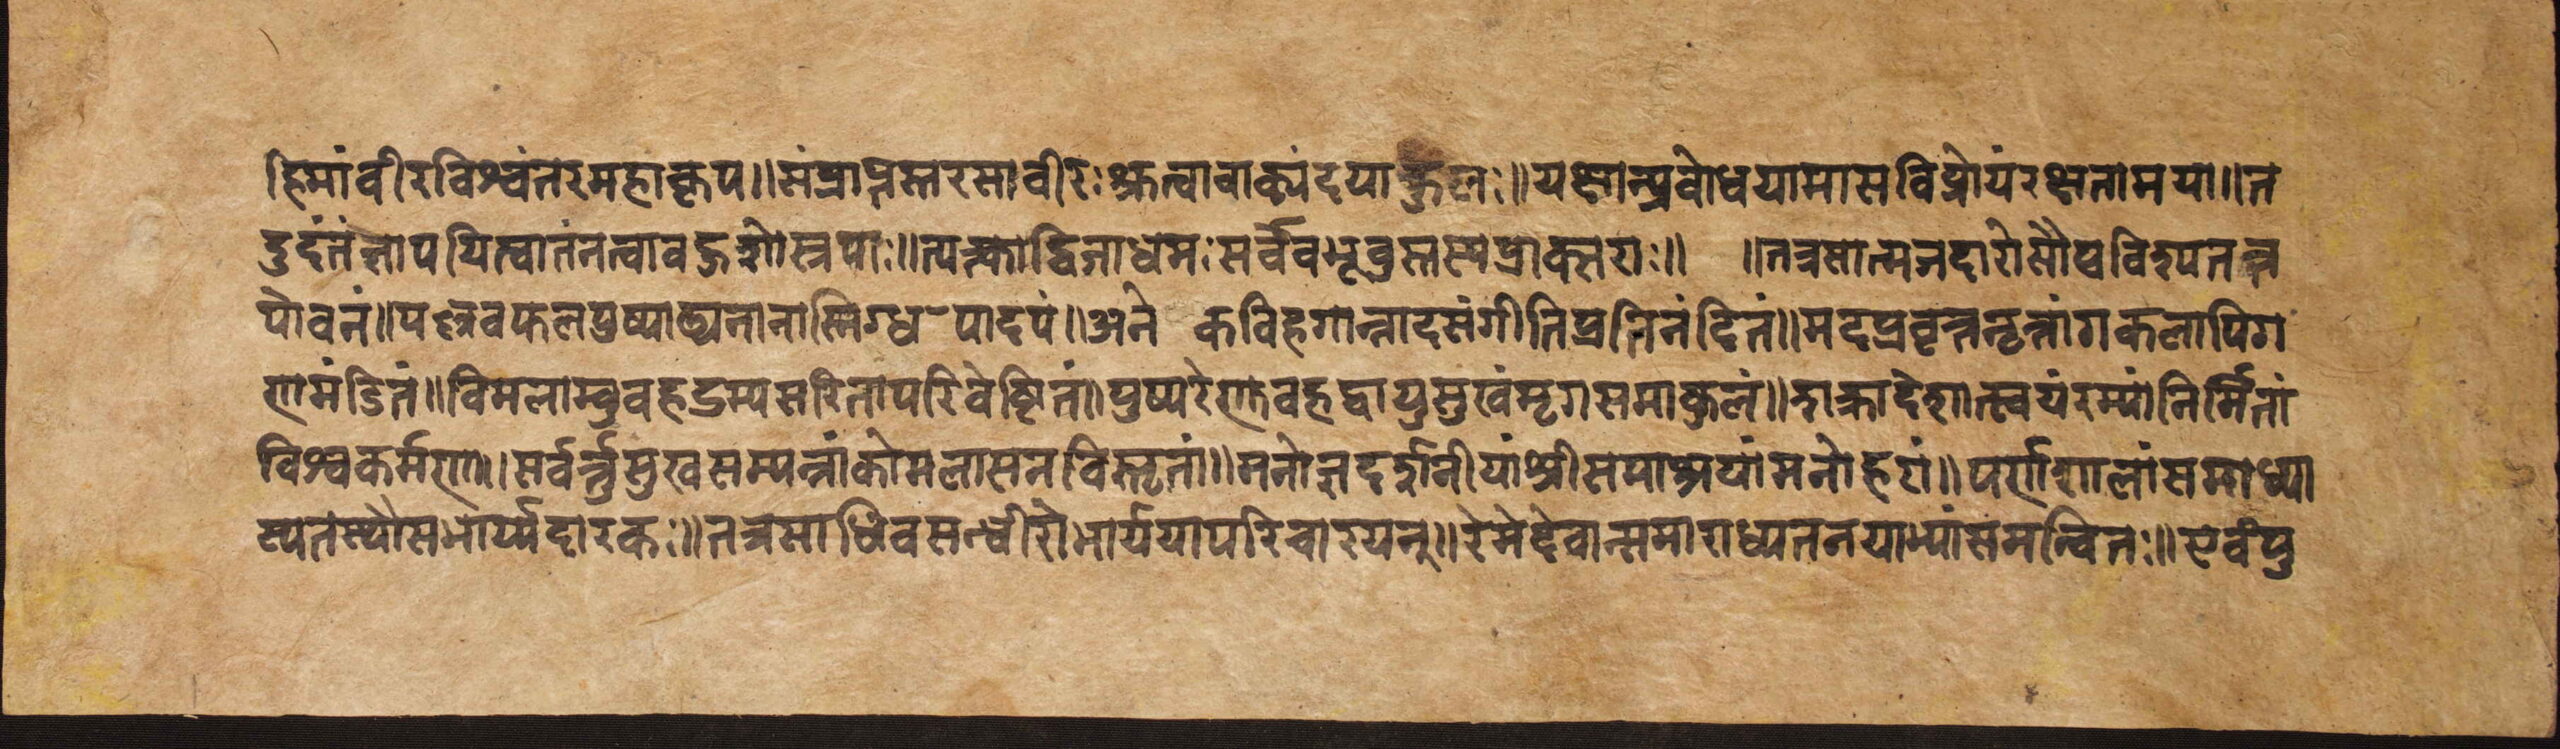 हि मां वीर विश्वंतर महाकृप ॥ संप्राप्तस्तरसा वीरः श्रुत्वा वाक्यं दयाकुलः ॥ यक्षान्प्रबोधयामास विप्रोयं रक्षतामया ॥ त
द्रुदंतं गोपयित्वा तं नत्वा वज्जशो स्त्रपाः ॥ त्यक्त्वा द्विजाधमः सर्वे बभूवुस्तस्य प्राक्सराः ॥ ॥ तत्र सात्मजदारो सौ पविश्य त तत्त
पोवनं ॥ पल्लवफलपुष्पाढ्यनानास्निग्धपादपं ॥ अनेकविहगोन्नादसंगीतिप्रतिनंदितं ॥ मदप्रवृत्तनृत्तांगकलापिग
णमंडितं ॥ विमलाम्बुवहद्रम्यसरितापरिवेष्टितं ॥ पुष्परेणुवहद्वायुसुखं मृगसमाकुलं ॥ शक्रादेशात्स्वयं रम्यां निर्मितां
विश्वकर्मणा ॥ सर्वर्त्तुसुखसम्पन्नां कोमलासनविस्तृतां ॥ मनोज्ञदर्शनीयां श्रीसमाश्रयां मनोहरां ॥ पर्णशालां समाध्या
स्य तस्थौ सभार्य्यदारकः ॥ तत्र साधिवसन्वीरो भार्यया परिचारयन् ॥ रेमे देवान्समाराध्य तनयाभ्यां समन्वितः ॥ एवं पु